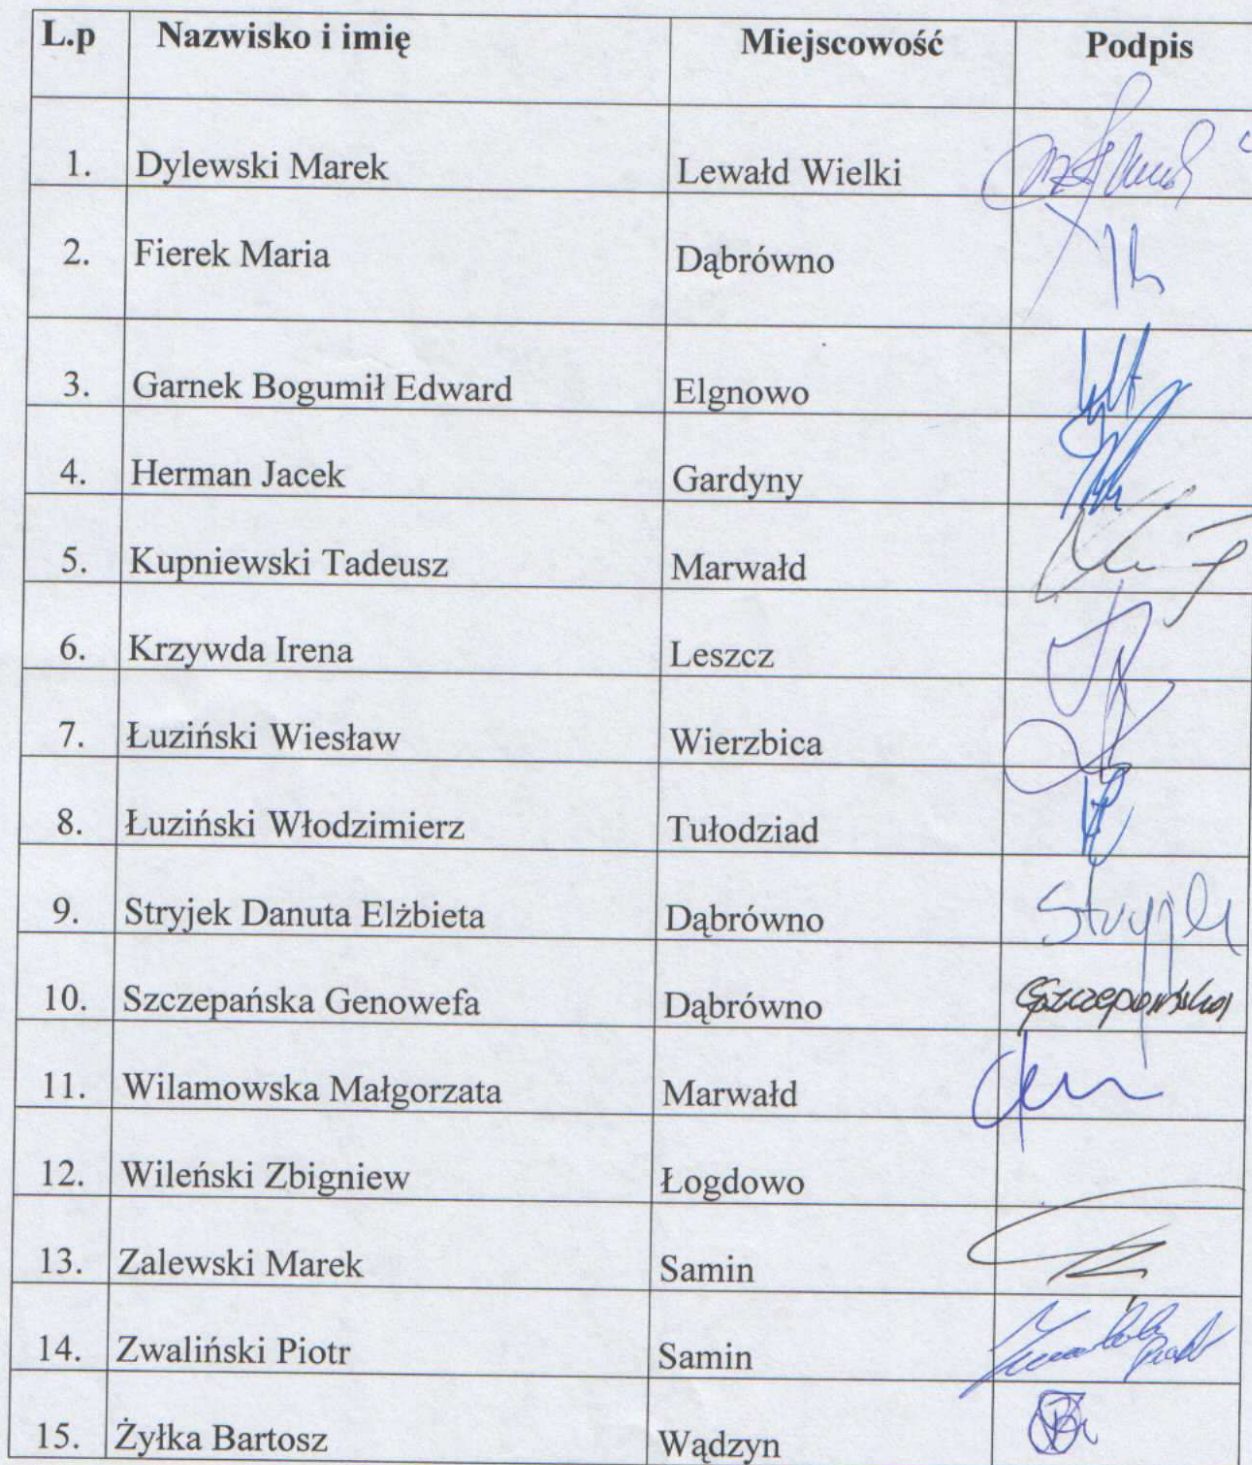 L.p Nazwisko i imię Miejscowość Podpis
1. Dylewski Marek Lewałd Wielki
2. Fierek Maria Dąbrówno
3. Garnek Bogumił Edward Elgnowo
4. Herman Jacek Gardyny
5. Kupniewski Tadeusz Marwałd
6. Krzywda Irena Leszcz
7. Łuziński Wiesław Wierzbica
8. Łuziński Włodzimierz Tułodziad
9. Stryjek Danuta Elżbieta Dąbrówno
10. Szczepańska Genowefa Dąbrówno GSzczepańska
11. Wilamowska Małgorzata Marwałd
12. Wileński Zbigniew Łogdowo
13. Zalewski Marek Samin
14. Zwaliński Piotr Samin
15. Żyłka Bartosz Wądzyn